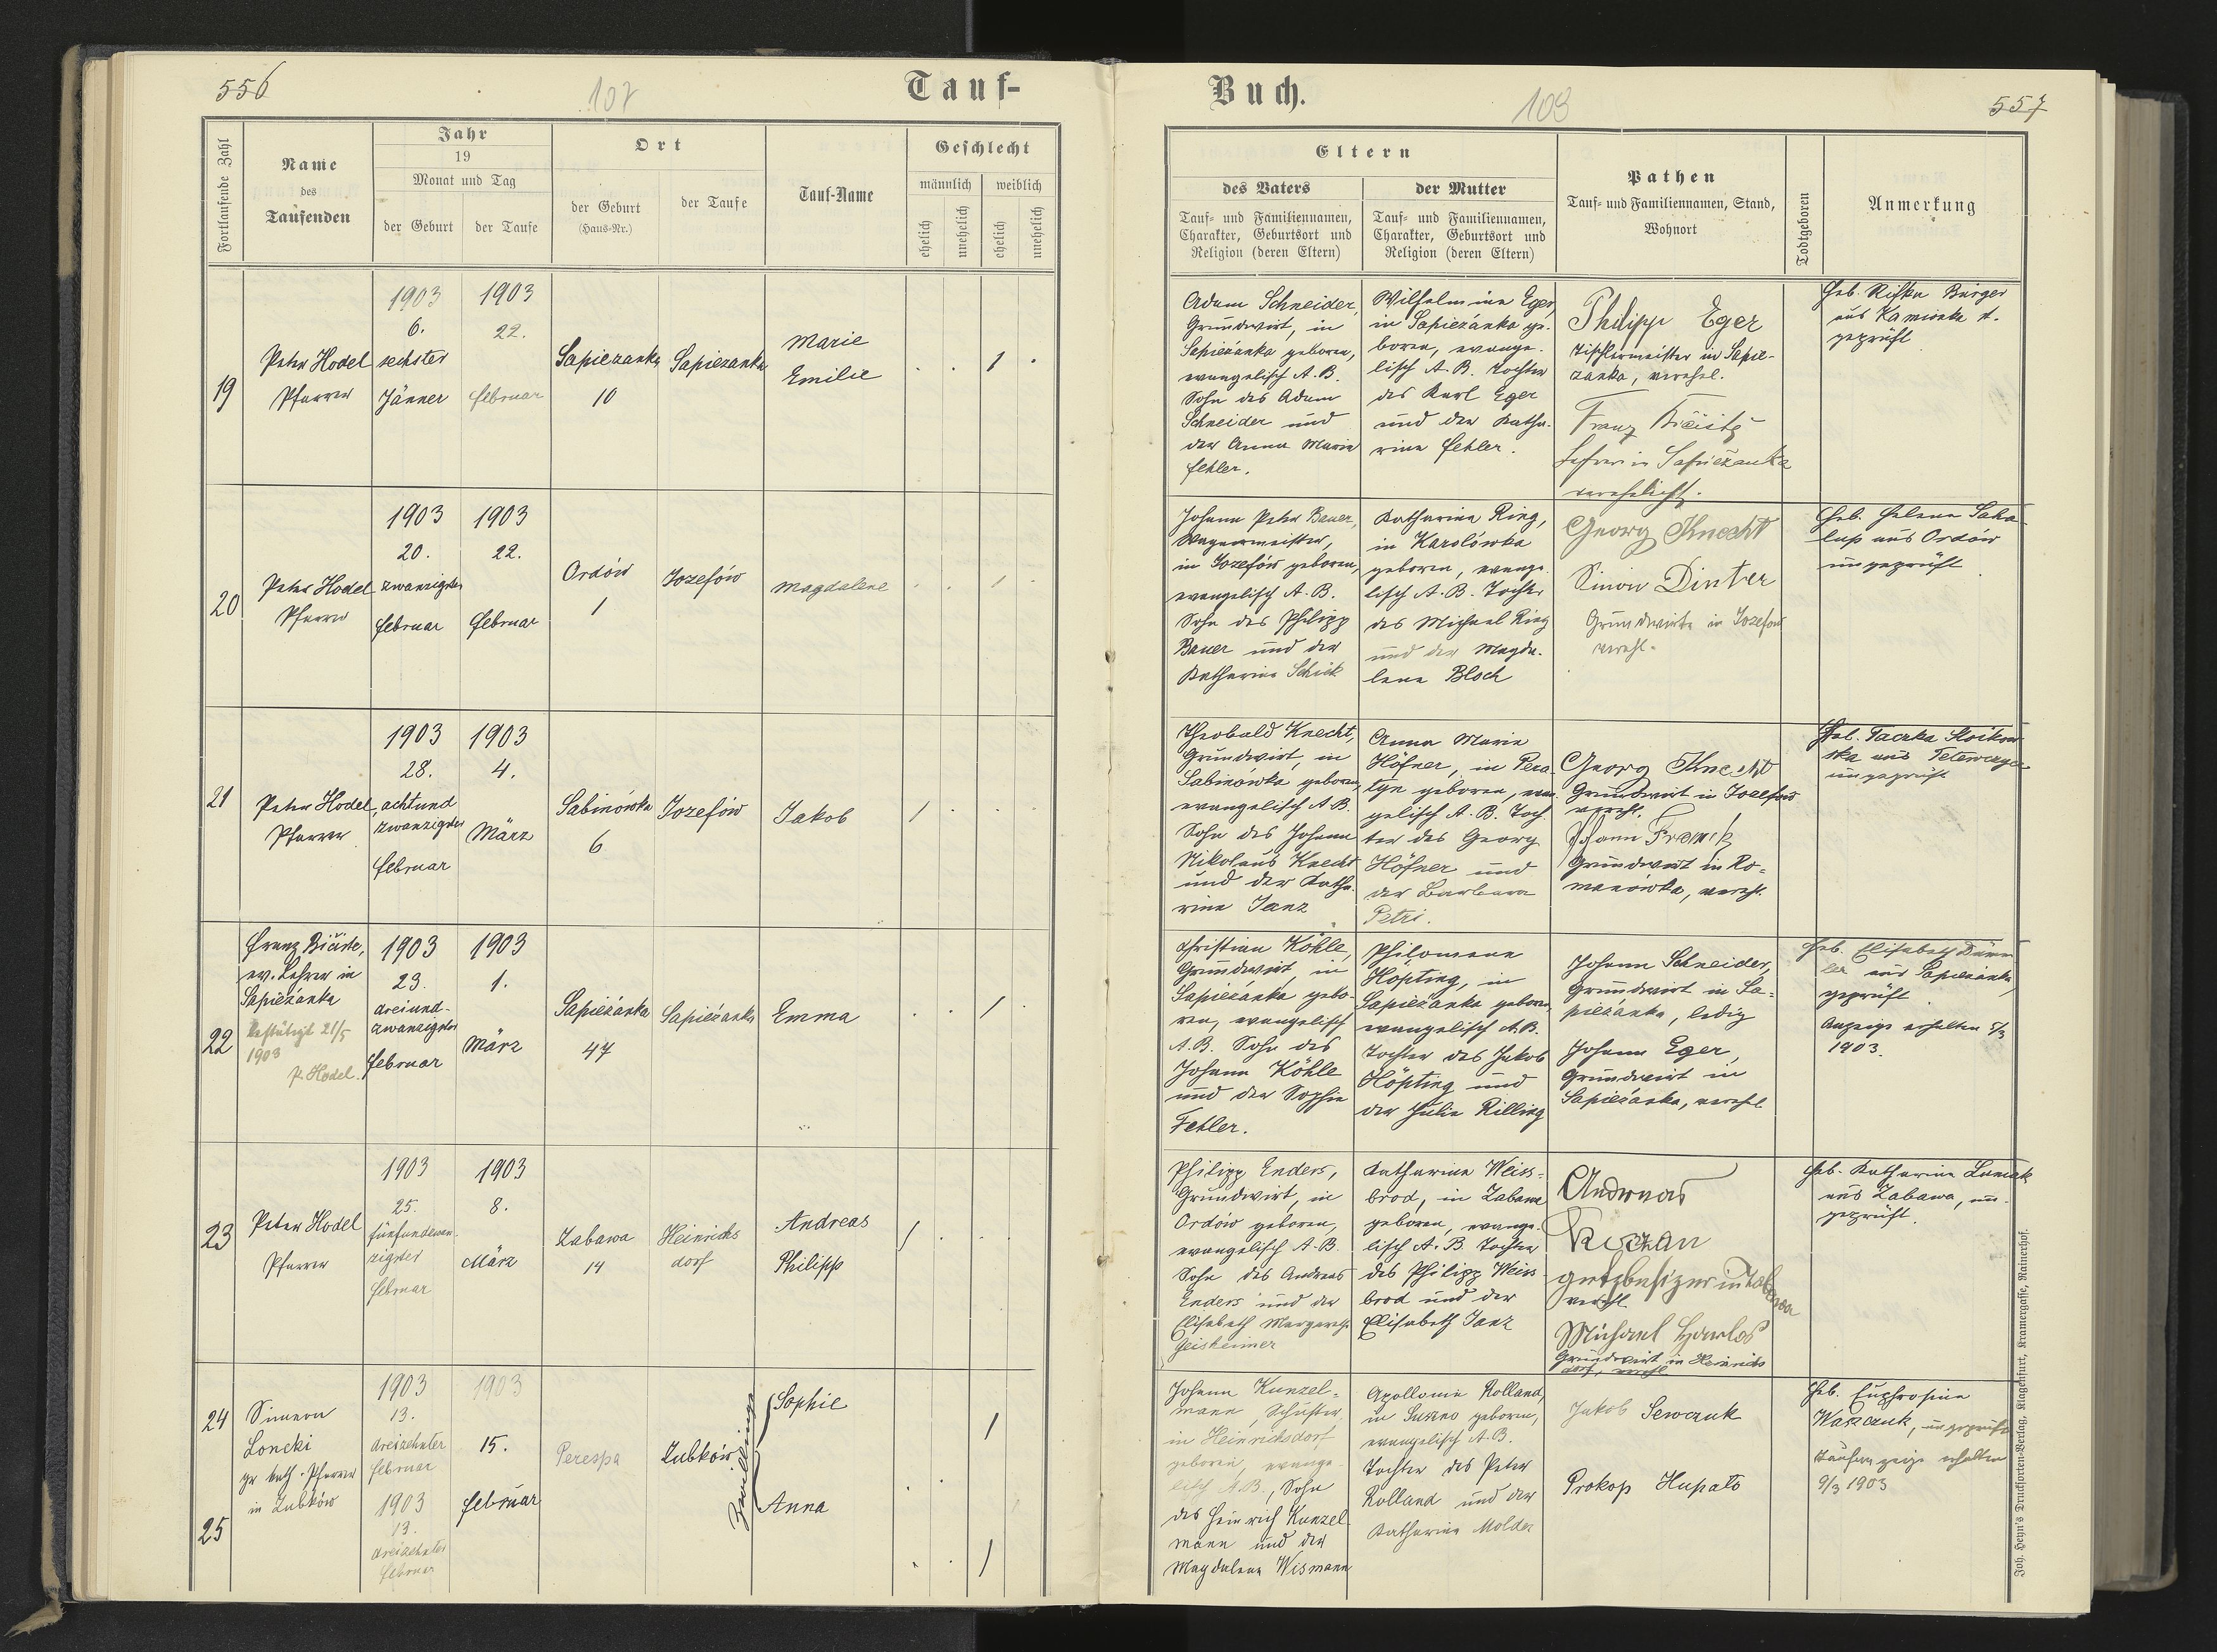 556
107
Tauf-
Fortlaufende Zahl
Name
des
Taufenden
Jahr
19
Monat und Tag
der Geburt
der Taufe
Ort
der Geburt
(Haus-Nr.)
der Taufe
Tauf-Name
Geschlecht
männlich
weiblich
ehelich
unehelich
ehelich
unehelich
19
Peter Hodel
Pfarrer
1903
6.
sechster
Jänner
1903
22.
Februar
Sapiezanka
10
Sapiezanka
Marie
Emilie
1
20
Peter Hodel
Pfarrer
1903
20.
zwanzigster
Februar
1903
22.
Februar
Ordów
1
Jozefów
Magdalene
1
21
Peter Hodel,
Pfarrer
1903
28.
achtund
zwanzigster
Februar
1903
4.
März
Sabinówka
6
Jozefów
Jakob
1
22
Franz
ev. Lehrer in
Sapieżanka
bestätigt 21/5
1903
P. Hodel.
1903
23.
dreiund-
zwanzigster
Februar
1903
1.
März
Sapieżanka
47
Sapieżanka
Emma
1
23
Peter Hodel
Pfarrer
1903
25.
fünfundzwan-
zigster
Februar
1903
8.
März
Zabawa
14
Heinrichs
dorf
Andreas
Philipp
1
24
25
Simeon
Loncki
gr. kath. Pfarrer
in Zubków
1903
13.
dreizehnter
Februar
1903
13.
dreizehnter
Februar
1903
15.
Februar
Perespa
Zubków
Zwillinge
Sophie
Anna
1
1
Buch.
109
557
Eltern
des Vaters
Tauf- und Familiennamen,
Charakter, Geburtsort und
Religion (deren Eltern)
der Mutter
Tauf- und Familiennamen,
Charakter, Geburtsort und
Religion (deren Eltern)
Pathen
Tauf- und Familiennamen, Stand,
Wohnort
Todtgeboren
Anmerkung
Adam Schneider,
Grundwirt, in
Sapieżanka geboren,
evangelisch A. B.
Sohn des Adam
Schneider und
der Anna Maria
Fehler.
Wilhelmina Eger,
in Sapieżanka ge-
boren, evange-
lisch A. B. Tochter
des Karl Eger
und der Katha-
rina Fehler.
Philipp Eger
Tischlermeister in Sapie-
zanka, verehel.
Franz
Lehrer in Sapieżanka
verehelicht.
Heb. Rifka Bürger
aus Kamionka st.
geprüft
Johann Peter Bauer,
Wagnermeister,
in Jozefów geboren,
evangelisch A. B.
Sohn des Philipp
Bauer und der
Katharina Schick
Katharina Ring,
in Karolówka
geboren, evange-
lisch A. B. Tochter
des Michael Ring
und der Magda-
lena Bloch
Georg Knecht
Simon Dinter
Grundwirte in Jozefów
verehl.
Heb. Helena
aus Ordów
ungeprüft
Theobald Knecht,
Grundwirt, in
Sabinówka geboren,
evangelisch A B.
Sohn des Johann
Nikolaus Knecht
und der Katha-
rina Janz
Anna Maria
Höfner, in Pera-
tyn geboren, evan-
gelisch A. B. Toch-
ter des Georg
Höfner und
der Barbara
Petri.
Georg Knecht
Grundwirt in Jozefow
verehl.
Johann
Grundwirt in Ro-
manówka, verehl.
Heb. Taczka
aus
ungeprüft
Christian Köhle,
Grundwirt, in
Sapieżanka gebo-
ren, evangelisch
A. B. Sohn des
Johann Köhle
und der Sophie
Fehler.
Philomena
Höpting, in
Sapieżanka geboren,
evangelisch A. B.
Tochter des Jakob
Höpting und
der Julia Rilling
Johann Schneider,
Grundwirt in Sa-
pieżanka, ledig
Johann Eger,
Grundwirt in
Sapieżanka, verehl.
Heb. Elisabeth
aus Sapieżanka,
geprüft
Anzeige erhalten 5/3
1903.
Philipp Enders,
Grundwirt, in
Ordów geboren,
evangelisch A. B.
Sohn des Andreas
Enders und der
Elisabeth Margareth.
Geisheimer
Katharina Weiss-
brod, in Zabawa
geboren, evange-
lisch A. B. Tochter
des Philipp Weiss
brod und der
Elisabeth Janz
Andreas
Grundbesizer in Zabawa
verehl.
Michael Harlos
Grundwirt in Heinrichs
dorf, verehl.
Heb. Katharina
aus Zabawa, un-
geprüft.
Johann Kunzel-
mann, Schuster,
in Heinrichsdorf
geboren, evange-
lisch A. B., Sohn
des Heinrich Kunzel
mann und der
Magdalena Wismann
Apollonia Rolland,
in Suszno geboren,
evangelisch A. B.
Tochter des Peter
Rolland und der
Katharina Molder
Jakob Sewczuk
Prokop Hupało
Heb. Euphrosina
Waszczuk, ungeprüft
Taufanzeige erhalten
9/3 1903
Joh. Heyn's Druckforten-Verlag, Klagenfurt, Kramergasse, Rainerhof.